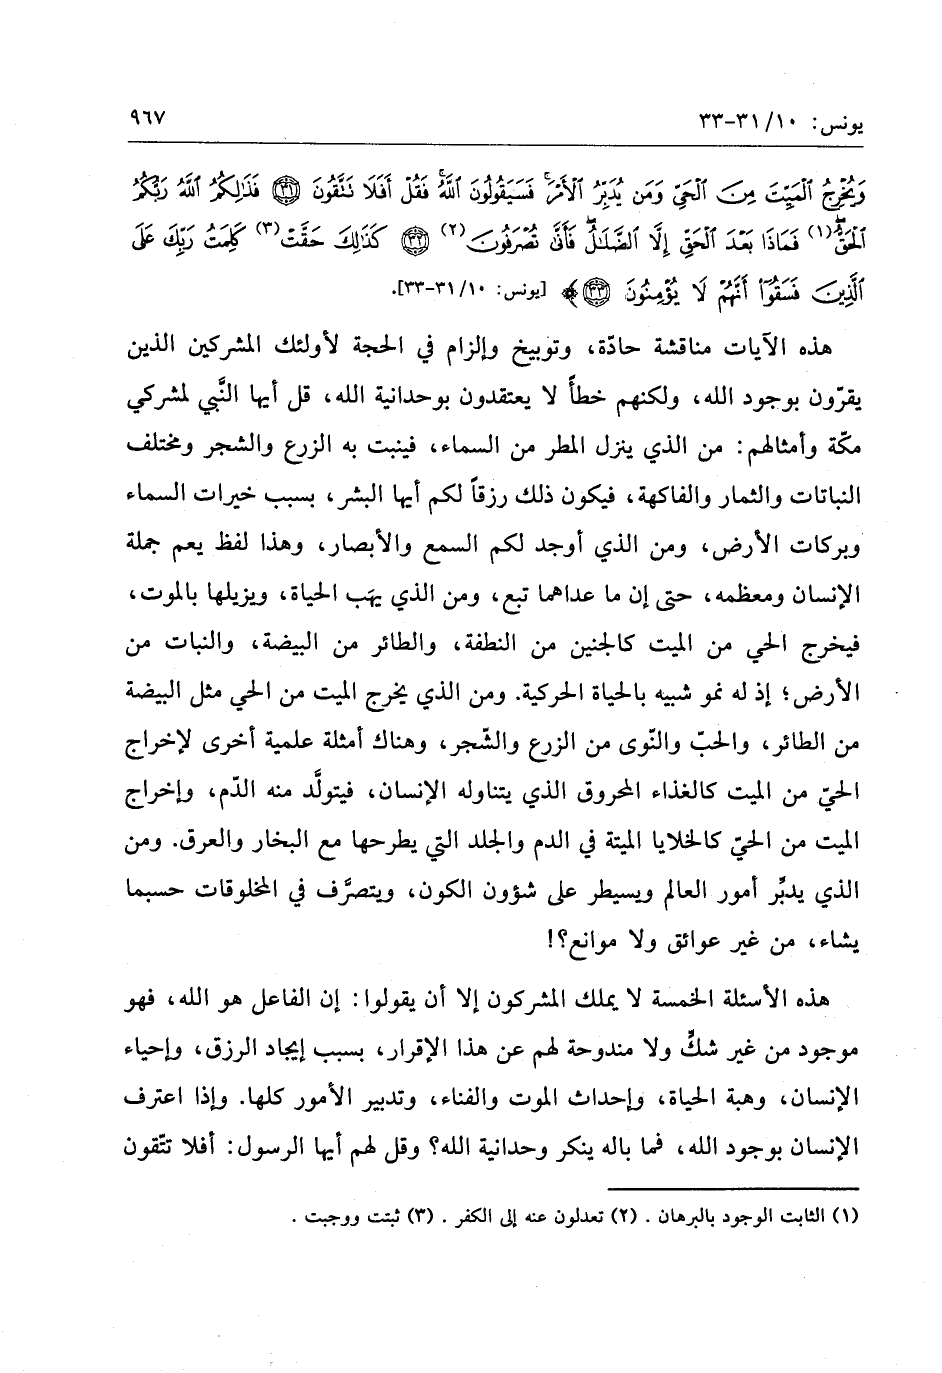 يونس: ١٠/ ٣١-٣٣ ٩٦٧
وَيُخْرِجُ ٱلْمَيِّتَ مِنَ ٱلْحَيِّ وَمَن يُدَبِّرُ ٱلْأَمْرَۚ فَسَيَقُولُونَ ٱللَّهُۚ فَقُلْ أَفَلَا تَتَّقُونَ ﴿٣١﴾ فَذَٰلِكُمُ ٱللَّهُ رَبُّكُمُ
ٱلْحَقُّۖ(١) فَمَاذَا بَعْدَ ٱلْحَقِّ إِلَّا ٱلضَّلَٰلُۖ فَأَنَّىٰ تُصْرَفُونَ(٢) ﴿٣٢﴾ كَذَٰلِكَ حَقَّتْ(٣) كَلِمَتُ رَبِّكَ عَلَى
ٱلَّذِينَ فَسَقُوٓا۟ أَنَّهُمْ لَا يُؤْمِنُونَ ﴿٣٣﴾﴾ [يونس: ١٠/ ٣١-٣٣].
هذه الآيات مناقشة حادّة، وتوبيخ وإلزام في الحجة لأولئك المشركين الذين
يقرّون بوجود الله، ولكنهم خطأً لا يعتقدون بوحدانية الله، قل أيها النَّبي لمشركي
مكّة وأمثالهم: من الذي ينزل المطر من السماء، فينبت به الزرع والشجر ومختلف
النباتات والثمار والفاكهة، فيكون ذلك رزقاً لكم أيها البشر، بسبب خيرات السماء
وبركات الأرض، ومن الذي أوجد لكم السمع والأبصار، وهذا لفظ يعم جملة
الإنسان ومعظمه، حتى إن ما عداهما تبع، ومن الذي يهَب الحياة، ويزيلها بالموت،
فيخرج الحي من الميت كالجنين من النطفة، والطائر من البيضة، والنبات من
الأرض؛ إذ له نمو شبيه بالحياة الحركية. ومن الذي يخرج الميت من الحي مثل البيضة
من الطائر، والحبّ والنّوى من الزرع والشّجر، وهناك أمثلة علمية أخرى لإخراج
الحيّ من الميت كالغذاء المحروق الذي يتناوله الإنسان، فيتولَّد منه الدّم، وإخراج
الميت من الحيّ كالخلايا الميتة في الدم والجلد التي يطرحها مع البخار والعرق. ومن
الذي يدبِّر أمور العالم ويسيطر على شؤون الكون، ويتصرَّف في المخلوقات حسبما
يشاء، من غير عوائق ولا موانع؟!
هذه الأسئلة الخمسة لا يملك المشركون إلا أن يقولوا: إن الفاعل هو الله، فهو
موجود من غير شكٍّ ولا مندوحة لهم عن هذا الإقرار، بسبب إيجاد الرزق، وإحياء
الإنسان، وهبة الحياة، وإحداث الموت والفناء، وتدبير الأمور كلها. وإذا اعترف
الإنسان بوجود الله، فما باله ينكر وحدانية الله؟ وقل لهم أيها الرسول: أفلا تتّقون
(١) الثابت الوجود بالبرهان . (٢) تعدلون عنه إلى الكفر . (٣) ثبتت ووجبت .